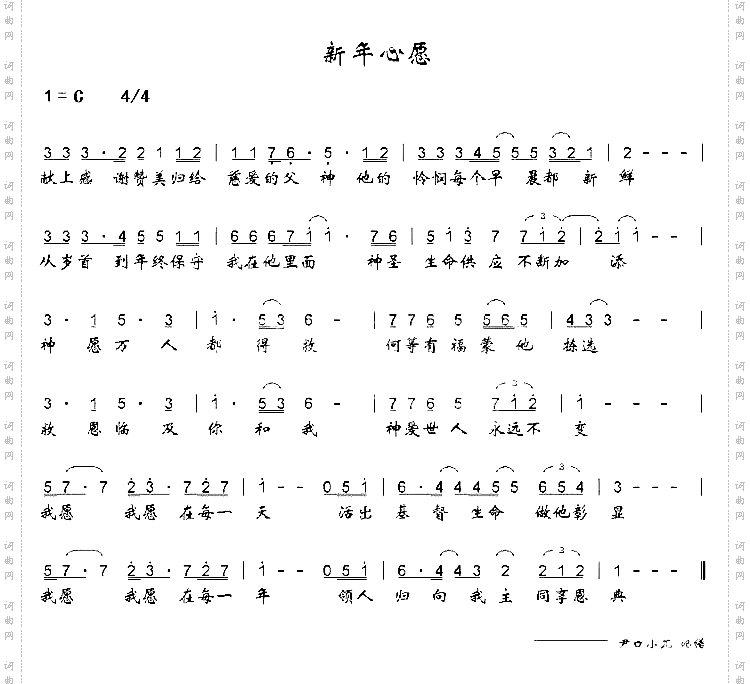 新年心愿
1=C 4/4
3 3 3 · 2 2 1 1 2 | 1 1 7 6 · 5 · 1 2 | 3 3 3 4 5 5 5 3 2 1 | 2 - - - |
献上感 谢赞美归给 慈爱的父 神 他的 怜悯每个早 晨都 新 鲜
3 3 3 · 4 5 5 1 1 | 6 6 6 7 1 1 · 7 6 | 5 1 3 7 7 1 2 | 2 1 - - |
从岁首 到年终保守 我在他里面 神圣 生命供 应 不断加 添
3 · 1 5 · 3 | 1 · 5 3 6 - | 7 7 6 5 5 6 5 | 4 3 3 - - |
神 愿 万 人 都 得 救 何等有 福 蒙 他 拣选
3 · 1 5 · 3 | 1 · 5 3 6 - | 7 7 6 5 7 1 2 | 1 - - - |
救 恩 临 及 你 和 我 神爱世 人 永远不 变
5 7 · 7 2 3 · 7 2 7 | 1 - - 0 5 1 | 6 · 4 4 4 5 5 6 5 4 | 3 - - - |
我愿 我愿 在每一 天 活出 基 督 生命 做他彰 显
5 7 · 7 2 3 · 7 2 7 | 1 - - 0 5 1 | 6 · 4 4 3 2 2 1 2 | 1 - - - ‖
我愿 我愿 在每一 年 领人 归 向 我 主 同享恩 典
词曲网
词曲网
词曲网
词曲网
词曲网
词曲网
词曲网
词曲网
词曲网
词曲网
词曲网
词曲网
词曲网
词曲网